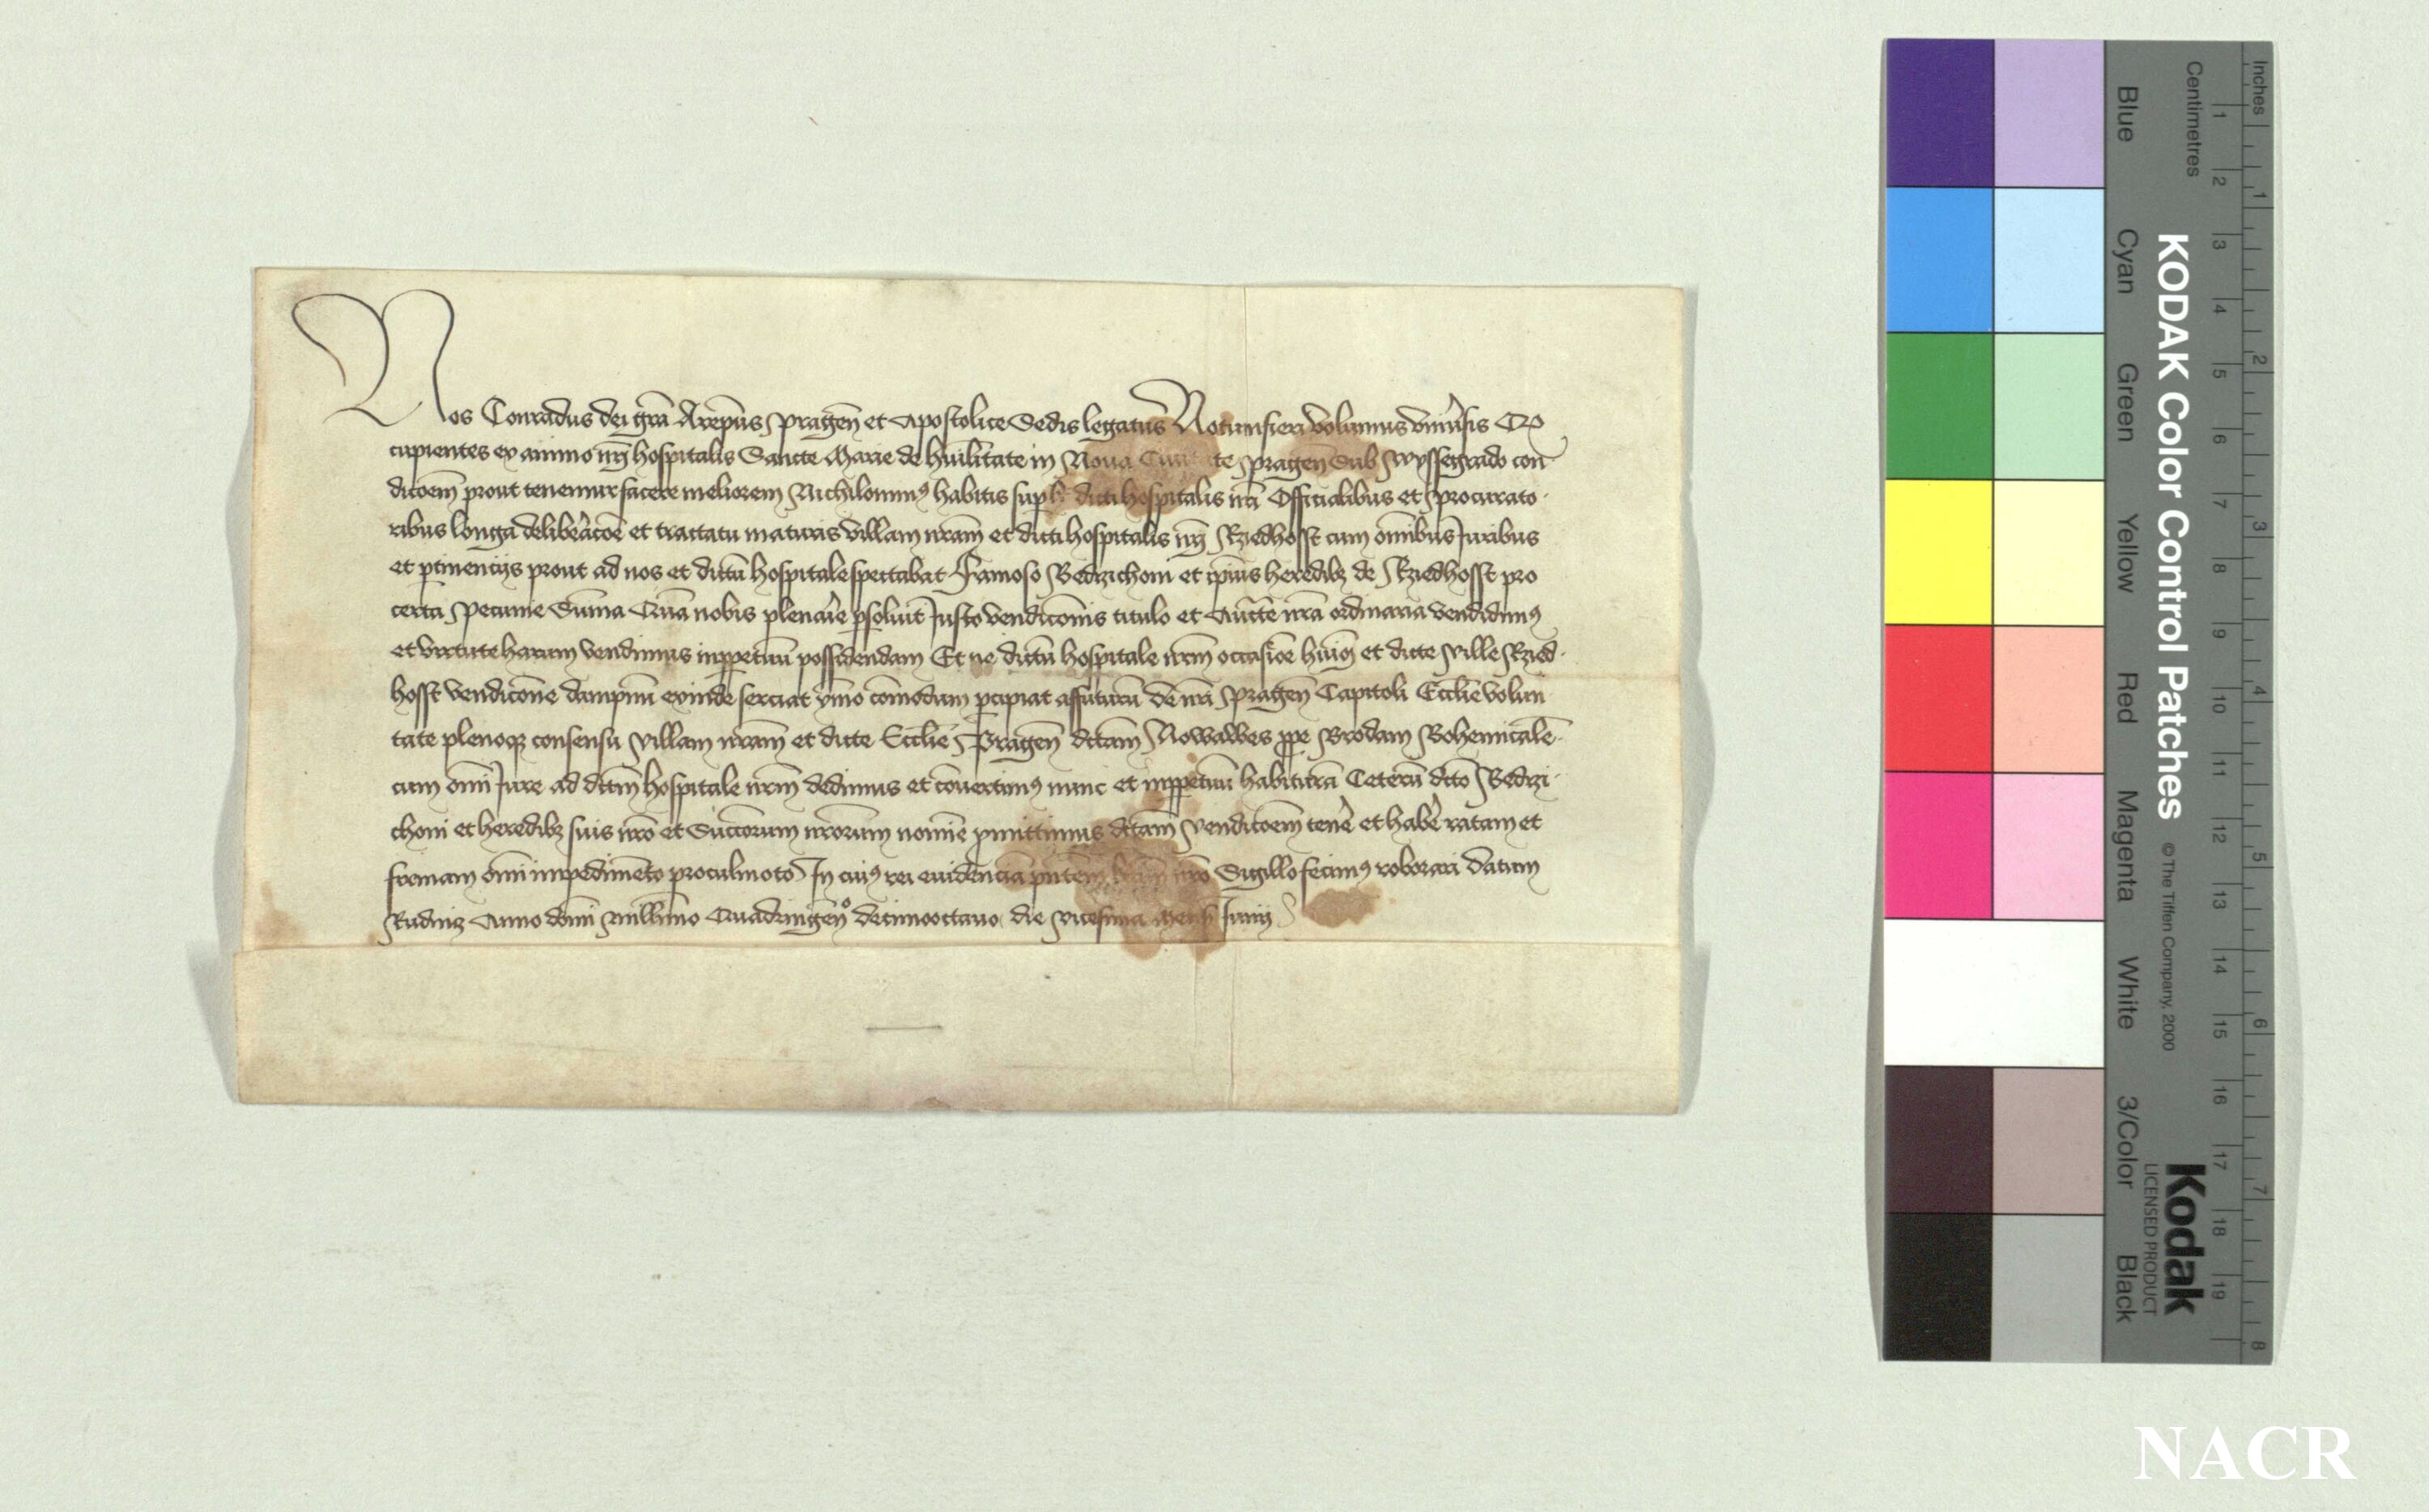 Nos Conradus dei gr̄a Arep̄us pragen̄ et apostolice Sedis legatus Notumfieri volumus vniu͛sis Q
cupientes ex animo nr̄i hospitalis Sancte Marie de hūilitate in Noua te pragen̄ Sub wyssegrado con
dicōem prout tenemur facere meliorem Nichilominꝰ habitis dicti hospitalis nr̄i Officialibus et procurato
ribus longa deliberac̄oe et tractatu maturis villam nr̄am et dicti hospitalis nr̄i Rziedhosst cum om̄ibus Juribus
et ꝑtinencijs prout ad nos et dictū hospitale spectabat Famoso Bedrzichoni et ip̄ius heredibꝫ de Rziedhosst pro
certa pecunie Sūma Quā nobis plenarie ꝑsoluit Justo vendicōnis titulo et Auc̄te nr̄a ordinaria vendidimꝰ
et virtute harum vendimus inꝑpetuū possidendam Et ne dictū hospitale nr̄m occasiōe huiōi et dicte ville Rzied
hosst vendicōne dampnū exinde senciat ymo cōmodum ꝑcipiat affuturū de nr̄i pragen̄ Capitoli Eccl̄ie volun
tate plenoqꝫ consensu villam nr̄am et dicte Eccl̄ie Pragen̄ dc̄am Nowawes ꝓpe Brodam Bohemicalē
cum om̄i Jure ad dc̄m hospitale nr̄m dedimus et cōuertimꝰ nunc et inꝑpetuū habiturā Ceterū dc̄o Bedrzi
choni et heredibꝫ suis nr̄o et Succ̄orum nr̄orum nomīe ꝓmittimus dc̄am vendicōem tene͛ et habe͛ ratam et
firmam om̄i impedimēto proculmoto In cuiꝰ rei euidenciā pn̄tem nr̄o Sigillo fecimꝰ roborari Datum
Rudnicz Anno dōni Mill̄imo Quadringen̄º decimooctauo die vicesima mens̄ Junij
Inches
Centimetres
1 2 3 4 5 6 7 8
1 2 3 4 5 6 7 8 9 10 11 12 13 14 15 16 17 18 19
KODAK Color Control Patches
© The Tiffen Company, 2000
Kodak
LICENSED PRODUCT
Blue
Cyan
Green
Yellow
Red
Magenta
White
3/Color
Black
NACR